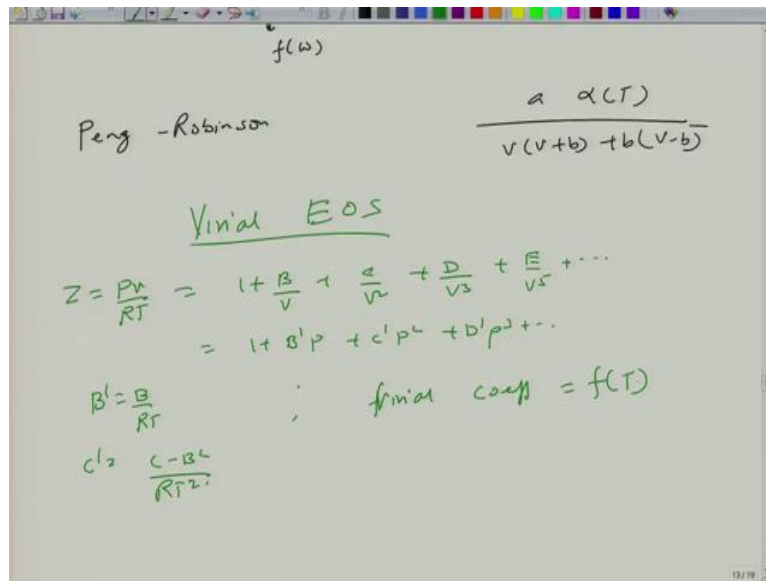 f(ω)
Peng - Robinson
a α(T)
v(v+b) + b(v-b)
Virial EOS
Z = Pv/RT = 1 + B/V + C/V2 + D/V3 + E/V5 + ...
= 1 + B'P + C'P2 + D'P3 + ...
B' = B/RT ; Virial coeff = f(T)
C' = C-B2/RT2
13/19